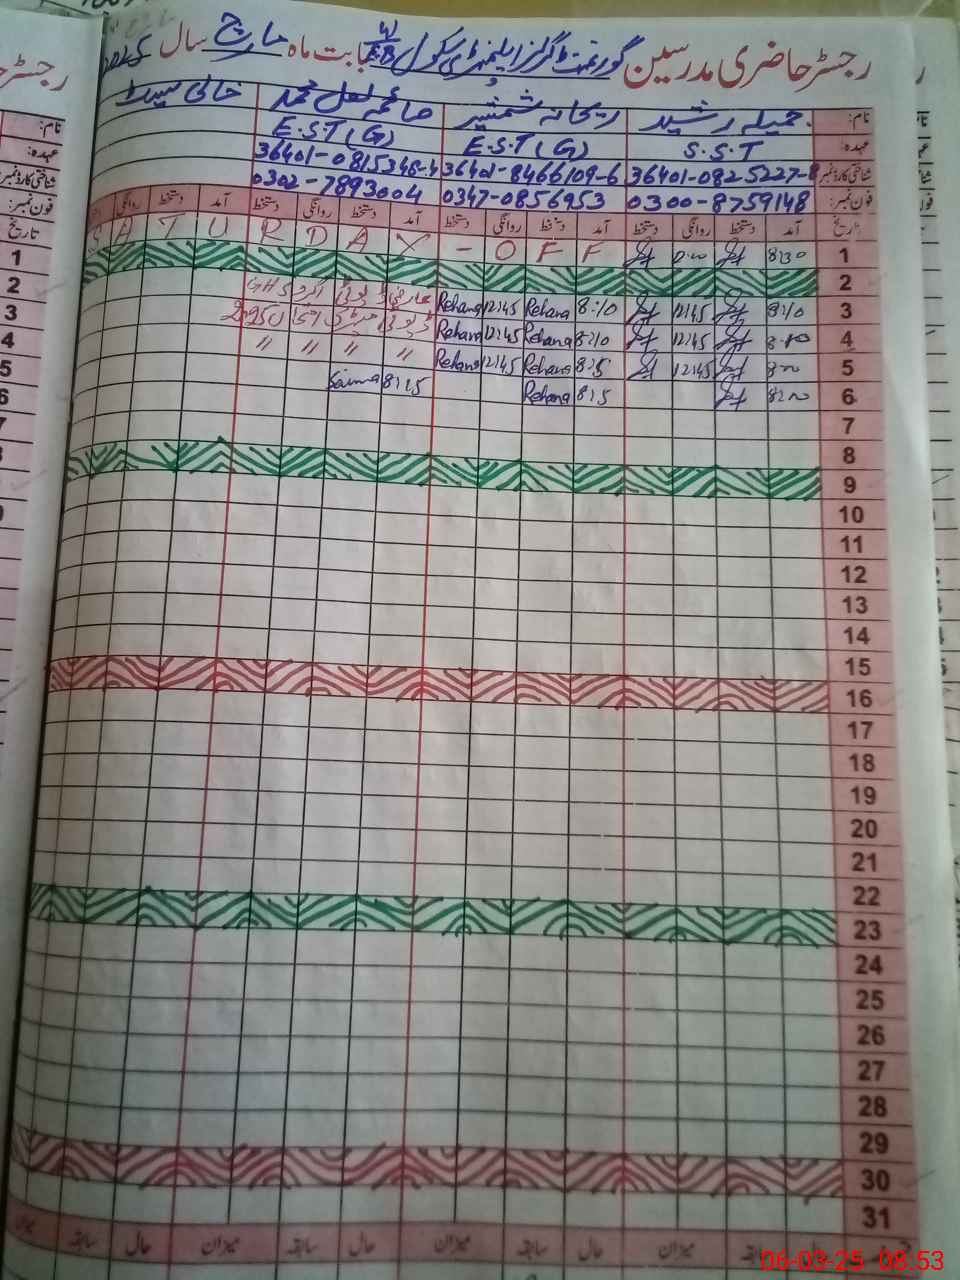 رجسٹر حاضری مدرسین گورنمنٹ گرلز ایلیمنٹری سکول EB بابت ماہ مارچ سال 2025
نام: جمیلہ رشید ریحانہ شمشیر صائمہ لعل محمد خالی سیٹ
عہدہ: S.S.T E.S.T (G) E.S.T (G)
شناختی کارڈ نمبر: 36401-0825227-8 36401-8466109-6 36401-0815348-4
فون نمبر: 0300-8759148 0347-0856953 0302-7893004
تاریخ آمد دستخط روانگی دستخط آمد دستخط روانگی دستخط آمد دستخط روانگی دستخط آمد دستخط روانگی
1 8:30 S A T U R D A Y - O F F
2
3 8:10 12:45 8:10 Rehana 12:45 Rehana
4 12:45 8:10 Rehana 12:45 Rehana
5 12:45 8:15 Rehana 12:45 Rehana " " " "
6 8:15 Rehana 8:15 Saima
7
8
9
10
11
12
13
14
15
16
17
18
19
20
21
22
23
24
25
26
27
28
29
30
31
سابقہ حال میزان سابقہ حال میزان سابقہ حال میزان
06-03-25 08:53